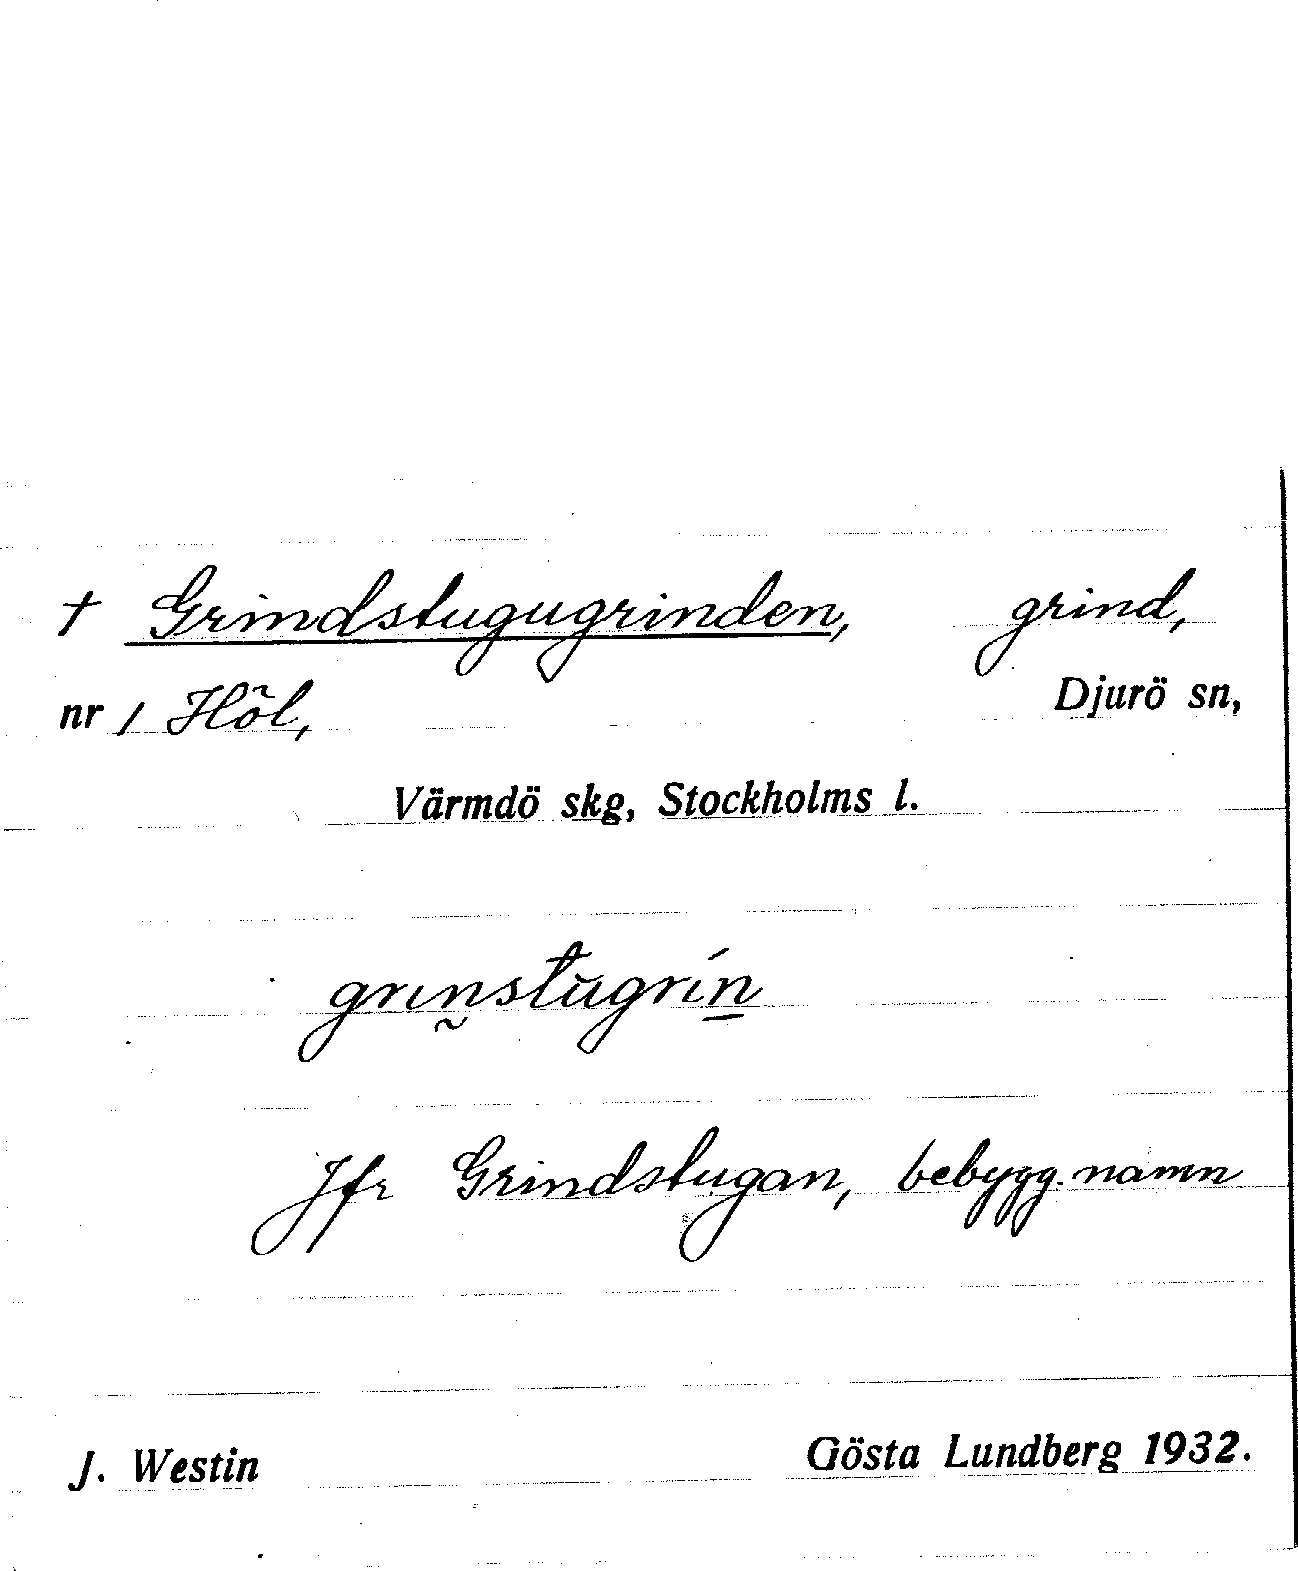 † Grindstugugrinden, grind,
nr 1 Hõl, Djurö sn,
Värmdö skg, Stockholms l.
grın̰stùgrín̲
Jfr Grindstugan, bebygg.namn
J. Westin Gösta Lundberg 1932.